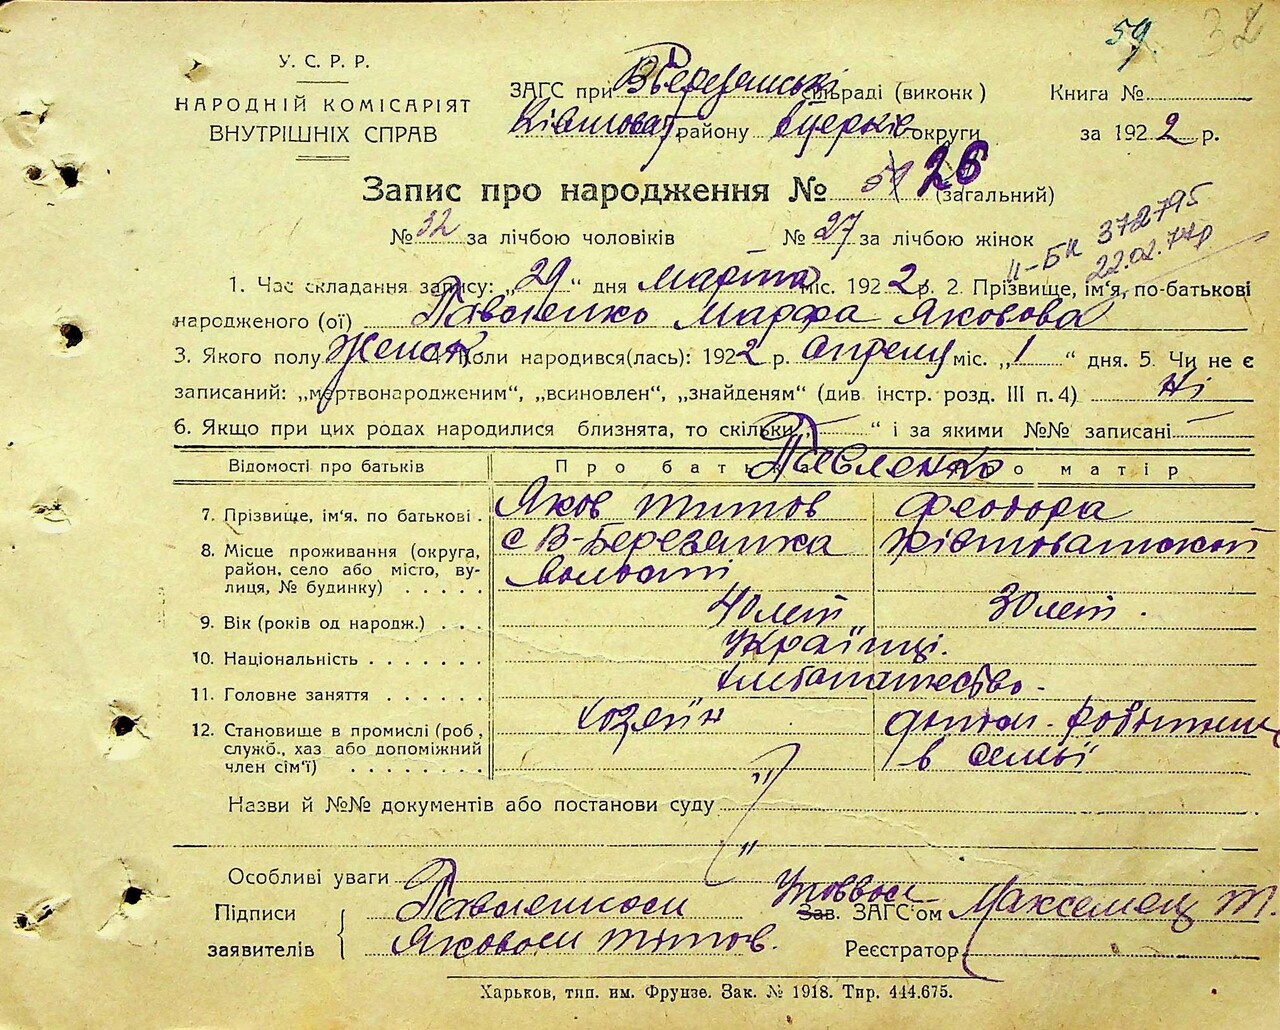 59 32
У. С. Р. Р.
НАРОДНІЙ КОМІСАРІЯТ
ВНУТРІШНІХ СПРАВ
ЗАГС при ВБерезянські сільраді (виконк)
району округи
Книга №
за 1922 р.
Запис про народження № 59 26 (загальний)
№ 32 за лічбою чоловіків № 27 за лічбою жінок
ІІ-БК 372795
22.02.77р
1. Час складання запису: „29“ дня марта міс. 1922 р. 2. Прізвище, ім'я, по-батькові
народженого (ої) Павленко Марфа Яковова
3. Якого полу Женск Коли народився(лась): 1922 р. Апрелу міс. „1“ дня. 5. Чи не є
записаний: „мертвонародженим“, „всиновлен“, „знайденям“ (див. інстр. розд. III п. 4) Ні
6. Якщо при цих родах народилися близнята, то скільки „ “ і за якими №№ записані
Відомості про батьків Про батька Павленко Про матір
7. Прізвище, ім'я, по батькові . Яков Титов Феодора
8. Місце проживання (округа, район, село або місто, вулиця, № будинку) . . . . . с В-Березянка
волості
9. Вік (років од народж.) . . . 40 лет 30 лет.
10. Національність . . . . . . . Українці.
11. Головне заняття . . . . . . хлебопашество.
12. Становище в промислі (роб., служб., хаз або допоміжний член сім'ї) . . . . . . . . хозяїн
в семьї
Назви й №№ документів або постанови суду „
„
Особливі уваги
Підписи заявителів Павленком
Яковом Титов.
Зав. ЗАГС'ом Максемец Т.
Реєстратор
Харьков, тип. им. Фрунзе. Зак. № 1918. Тир. 444.675.